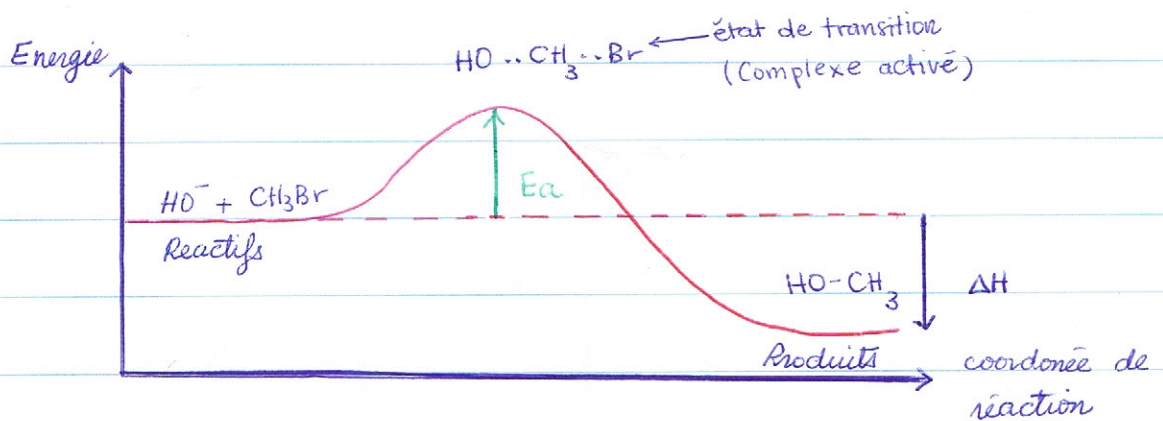 Energie
HO ‥ CH₃ ‥ Br
état de transition
(Complexe activé)
HO⁻ + CH₃Br
Ea
Reactifs
HO-CH₃
ΔH
Produits
coordonée de
réaction